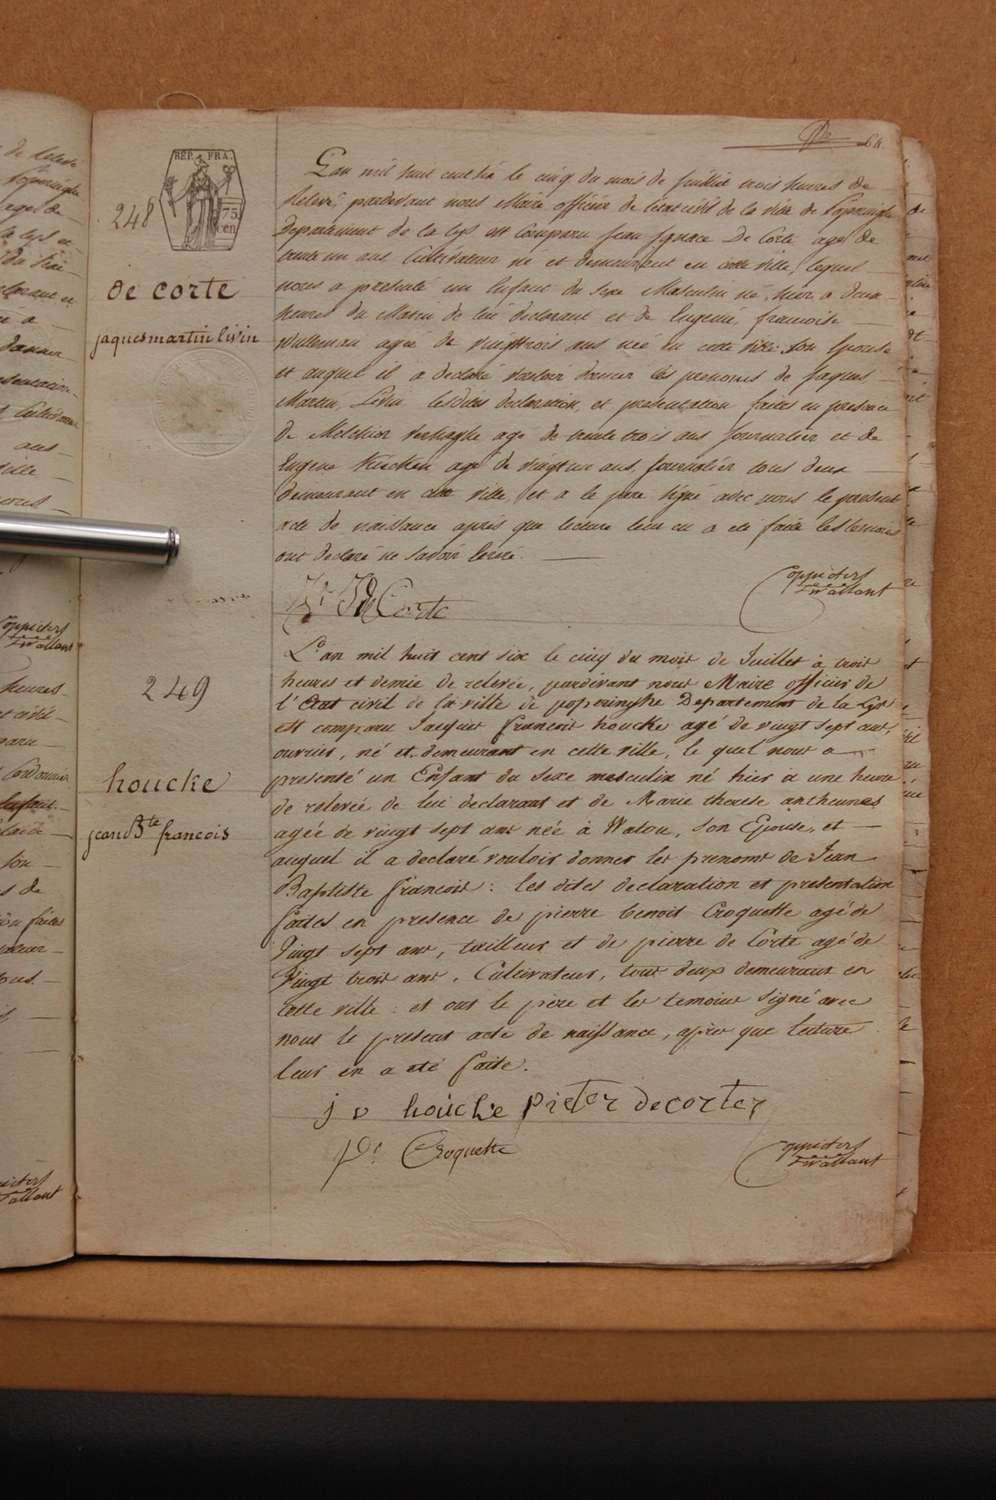 64.
REP. FRA.
75
cen
248
de corte
jaques martin livin
L'an mil huit cent six le cinq du mois de Juillet trois heures de
Relevé, pardevant nous Maire officier de l'etat civil de la ville de Poperinghe
Departement de la Lys est Comparu Jean Ignace De Corte agé de
trente un ans Cultivateur né et demeurant en cette ville, lequel
nous a presenté un Enfant du sexe Masculin né hier a deux
heures du Matin de lui declarant et de Eugenie francoise
agée de vingttrois ans née en cette ville son Epouse
et auquel il a declaré vouloir donner les prenoms de Jaques
Martin, Livin lesdites declaration, et presentation faites en presence
de Melchior Verhaeghe agé de trente trois ans journalier et de
Eugene agé de vingt un ans, journalier tous deux
demeurant en cette ville, et a le pere signé avec nous le present
acte de naissance après que lecture leur en a eté faite les temoins
ont declaré ne savoir Ecrire.
De Corte
Coppieters
Twallant
249
houcke
jean Bte francois
L'an mil huit cent six le cinq du mois de Juillet à trois
heures et demie de relevée, pardevant nous Maire officier de
l'Etat civil de la ville de poperinghe Departement de la Lys
est comparu Jacques francois houcke agé de vingt sept ans,
ouvrier, né et demeurant en cette ville, le quel nous a
presenté un Enfant du sexe masculin né hier à une heure
de relevée de lui declarant et de Marie therese antheunes
agée de vingt sept ans née à Watou, son Epouse, et
auquel il a declaré vouloir donner les prenoms de Jean
Baptiste francois: les dites declaration et presentation
faites en presence de pierre benoit Croquette agé de
Vingt sept ans, tailleur et de pierre de Corte agé de
Vingt trois ans, Cultivateur, tous deux demeurant en
cette ville: et ont le père et les temoins signé avec
nous le present acte de naissance, après que lecture
leur en a eté faite.
j v houcke pieter decorter
Croquette
Coppieters
Twallant